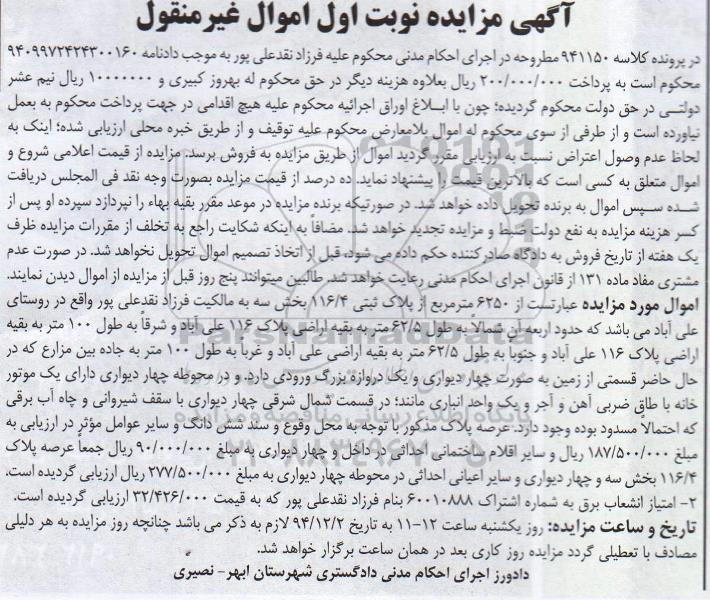 آگهی مزایده نوبت اول اموال غیرمنقول
در پرونده کلاسه ۹۴۱۱۵۰ مطروحه در اجرای احکام مدنی محکوم علیه فرزاد نقدعلی پور به موجب دادنامه ۹۴۰۹۹۷۲۴۲۴۳۰۰۱۶۰
محکوم است به پرداخت ۲۰۰/۰۰۰/۰۰۰ ریال بعلاوه هزینه دیگر در حق محکوم له بهروز کبیری و ۱۰۰۰۰۰۰۰ ریال نیم عشر
دولتی در حق دولت محکوم گردیده؛ چون با ابلاغ اوراق اجرائیه محکوم علیه هیچ اقدامی در جهت پرداخت محکوم به بعمل
نیاورده است و از طرفی از سوی محکوم له اموال بلامعارض محکوم علیه توقیف و از طریق خبره محلی ارزیابی شده؛ اینک به
لحاظ عدم وصول اعتراض نسبت به ارزیابی مقرر گردید اموال از طریق مزایده به فروش برسد. مزایده از قیمت اعلامی شروع و
اموال متعلق به کسی است که بالاترین قیمت را پیشنهاد نماید. ده درصد از قیمت مزایده بصورت وجه نقد فی المجلس دریافت
شده سپس اموال به برنده تحویل داده خواهد شد. در صورتیکه برنده مزایده در موعد مقرر بقیه بهاء را نپردازد سپرده او پس از
کسر هزینه مزایده به نفع دولت ضبط و مزایده تجدید خواهد شد. مضافاً به اینکه شکایت راجع به تخلف از مقررات مزایده ظرف
یک هفته از تاریخ فروش به دادگاه صادرکننده حکم داده می شود، قبل از اتخاذ تصمیم اموال تحویل نخواهد شد. در صورت عدم
مشتری مفاد ماده ۱۳۱ از قانون اجرای احکام مدنی رعایت خواهد شد. طالبین میتوانند پنج روز قبل از مزایده از اموال دیدن نمایند.
اموال مورد مزایده عبارتست از ۶۲۵۰ مترمربع از پلاک ثبتی ۱۱۶/۴ بخش سه به مالکیت فرزاد نقدعلی پور واقع در روستای
علی آباد می باشد که حدود اربعه آن شمالاً به طول ۶۲/۵ متر به بقیه اراضی پلاک ۱۱۶ علی آباد و شرقاً به طول ۱۰۰ متر به بقیه
اراضی پلاک ۱۱۶ علی آباد و جنوبا به طول ۶۲/۵ متر به بقیه اراضی علی آباد و غرباً به طول ۱۰۰ متر به جاده بین مزارع که در
حال حاضر قسمتی از زمین به صورت چهار دیواری و یک دروازه بزرگ ورودی دارد. و در محوطه چهار دیواری دارای یک موتور
خانه با طاق ضربی آهن و آجر و یک واحد انباری مانند؛ در قسمت شمال شرقی چهار دیواری با سقف شیروانی و چاه آب برقی
که احتمالاً مسدود بوده وجود دارد. عرصه پلاک مذکور با توجه به محل وقوع و سند شش دانگ و سایر عوامل مؤثر در ارزیابی به
مبلغ ۱۸۷/۵۰۰/۰۰۰ ریال و سایر اقلام ساختمانی احداثی در داخل و چهار دیواری به مبلغ ۹۰/۰۰۰/۰۰۰ ریال جمعاً عرصه پلاک
۱۱۶/۴ بخش سه و چهار دیواری و سایر اعیانی احداثی در محوطه چهار دیواری به مبلغ ۲۷۷/۵۰۰/۰۰۰ ریال ارزیابی گردیده است.
۲- امتیاز انشعاب برق به شماره اشتراک ۶۰۰۱۰۸۸۸ بنام فرزاد نقدعلی پور که به قیمت ۳۲/۴۲۶/۰۰۰ ارزیابی گردیده است.
تاریخ و ساعت مزایده: روز یکشنبه ساعت ۱۲-۱۱ به تاریخ ۹۴/۱۲/۲ لازم به ذکر می باشد چنانچه روز مزایده به هر دلیلی
مصادف با تعطیلی گردد مزایده روز کاری بعد در همان ساعت برگزار خواهد شد.
دادورز اجرای احکام مدنی دادگستری شهرستان ابهر- نصیری
ParsNamadData
پایگاه اطلاع رسانی مناقصه و مزایده
۰۲۱-۸۸۳۴۹۶۷۰-۵